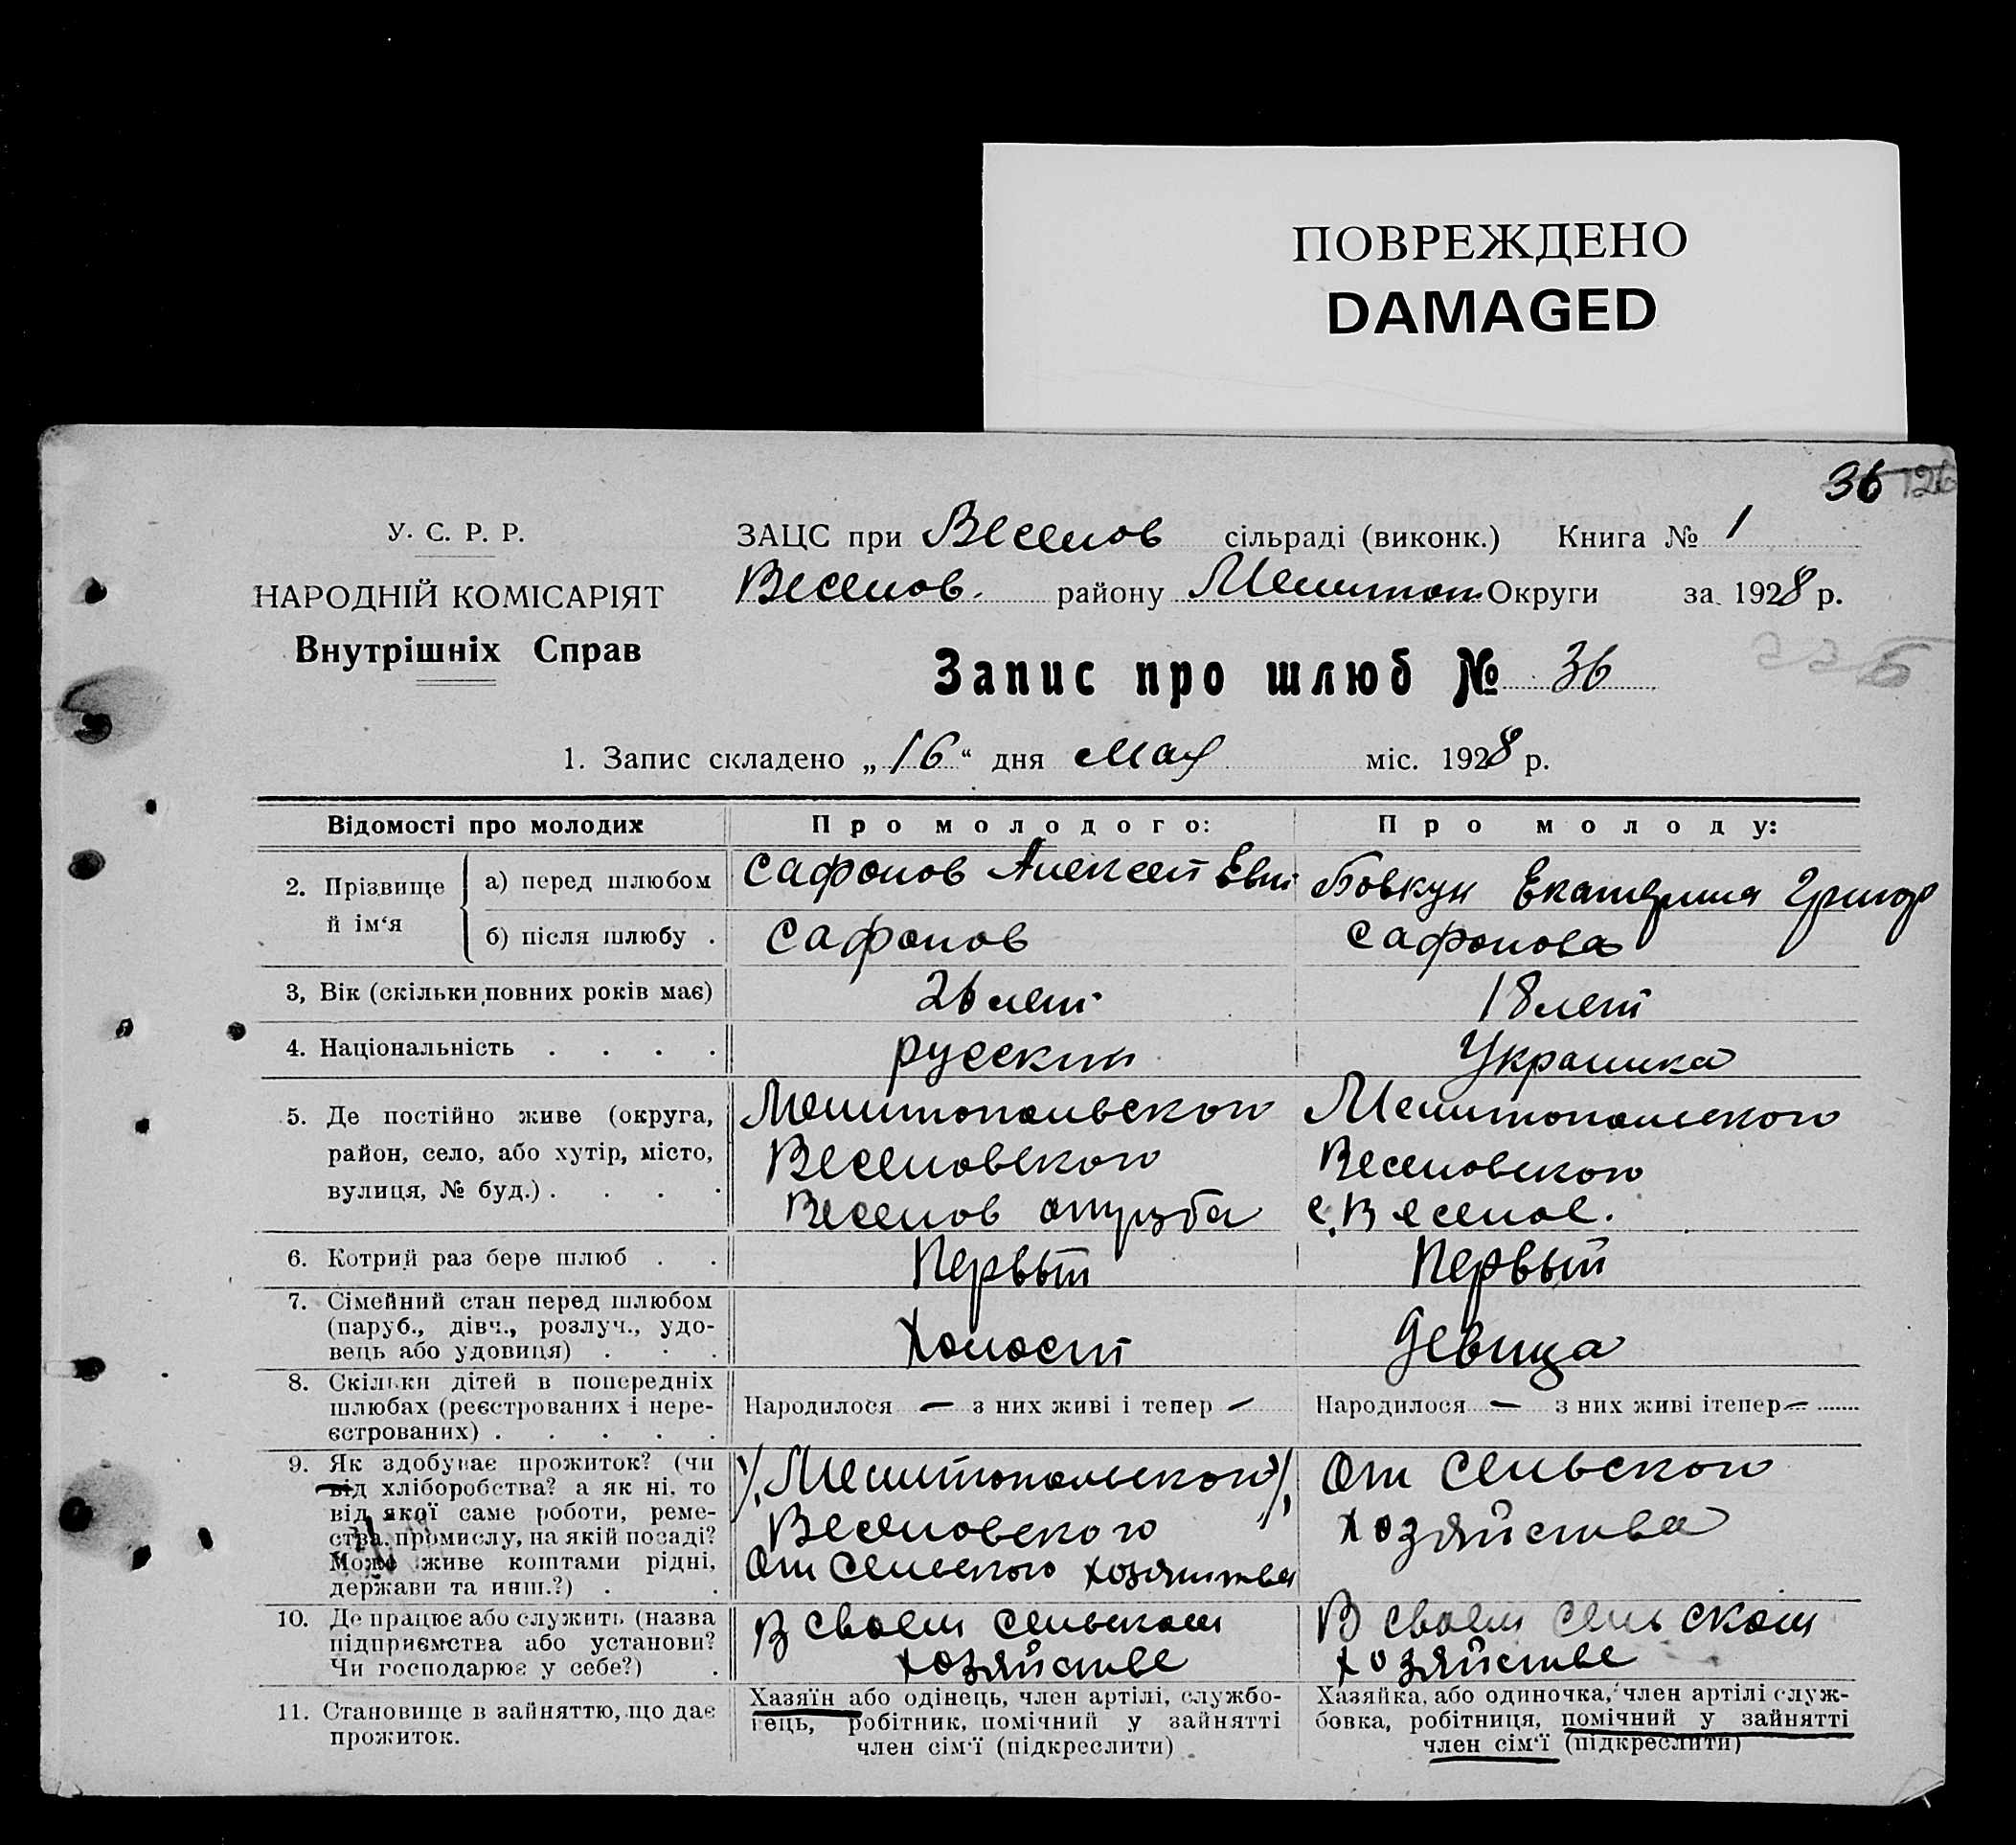 ПОВРЕЖДЕНО
DAMAGED
36 126
У. С. Р. Р.
НАРОДНІЙ КОМІСАРІЯТ
Внутрішніх Справ
ЗАЦС при Веселов сільраді (виконк.) Книга № 1
Веселов. району Мелитоп Округи за 1928 р.
Запис про шлюб № 36
1. Запис складено „16“ дня мая міс. 1928 р.
Відомості про молодих
Про молодого:
Про молоду:
2. Прізвище й ім‘я
а) перед шлюбом
Сафонов Алексей Евт
Бовкун Екатерина Григор
б) після шлюбу .
Сафонов
Сафонова
3, Вік (скільки повних років має)
26 лет
18 лет
4. Національність . . . .
русский
Украинка
5. Де постійно живе (округа,
район, село, або хутір, місто,
вулиця, № буд.) . . . .
Мелитопольского
Веселовского
Веселов
Мелитопольского
Веселовского
с. Веселое.
6. Котрий раз бере шлюб . .
Первый
Первый
7. Сімейний стан перед шлюбом
(паруб., дівч., розлуч., удо-
вець або удовиця) . . .
Холост
Девица
8. Скільки дітей в попередніх
шлюбах (реєстрованих і нере-
єстрованих) . . . . .
Народилося — з них живі і тепер —
Народилося — з них живі ітепер —
9. Як здобуває прожиток? (чи
від хліборобства? а як ні, то
від якої саме роботи, реме-
ства, промислу, на якій посаді?
Може живе коштами рідні,
держави та инш.?) . .
Мелитопольского
Веселовского
От сельского хозяйства
От сельского
хозяйства
10. Де працює або служить (назва
підприємства або установи?
Чи господарює у себе?) .
В своем сельском
хозяйстве
В своем сельском
хозяйстве
11. Становище в зайняттю, що дає
прожиток.
Хазяїн або одінець, член артілі, службо-
вець, робітник, помічний у зайнятті
член сім‘ї (підкреслити)
Хазяйка, або одиночка, член артілі служ-
бовка, робітниця, помічний у зайнятті
член сім‘ї (підкреслити)